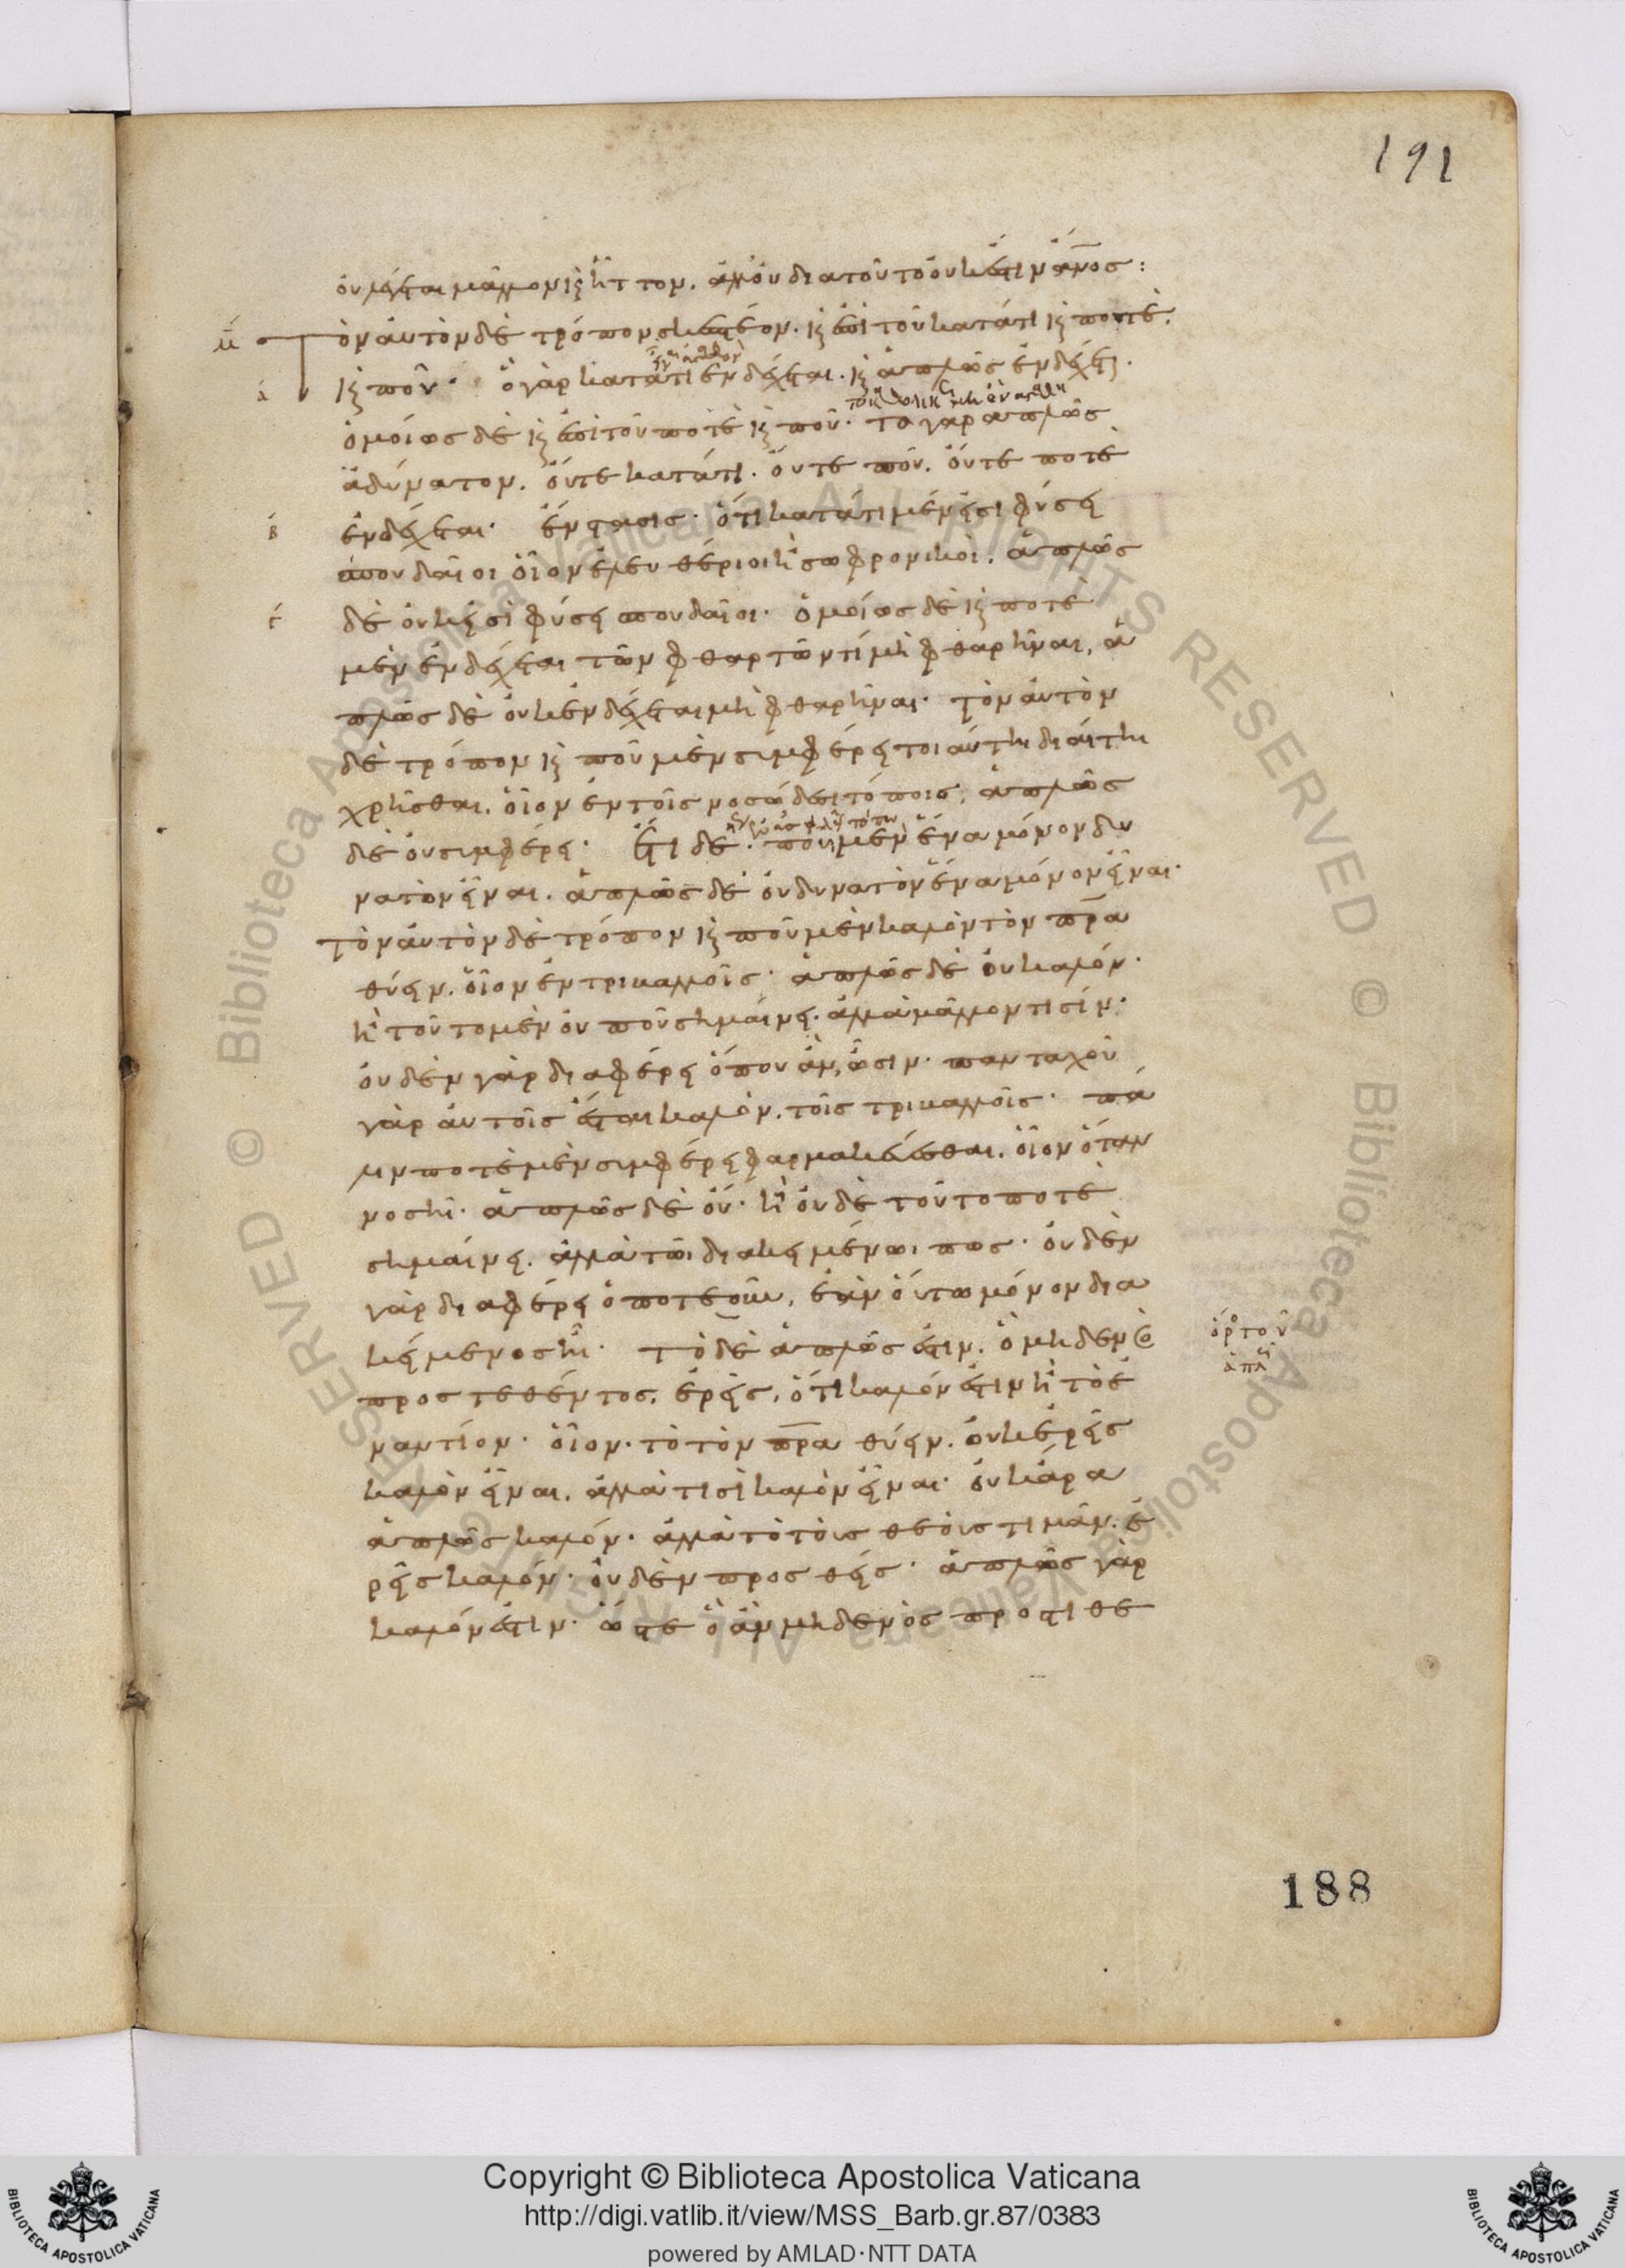 191
οὐ λέγεται μᾶλλον κ ἧττον. ἀλλ' οὐ διὰ τοῦτο οὐκ ἔστιν ἄνος:
Τὸν αὐτὸν δὲ τρόπον σκεπτέον. κ ἐπὶ τοῦ κατά τι κ ποτέ.
κ ποῦ· ὃ γὰρ κατά τι ἐνδέχεται. κ ἁπλῶς ἐνδέχετ.
ὁμοίως δὲ κ ἐπὶ τοῦ ποτὲ κ ποῦ· τὸ γὰρ ἁπλῶς
ἀδύνατον. οὔτε κατά τι. οὔτε ποῦ. οὔτε ποτὲ
ἐνδέχεται· ἔνστασις· ὅτι κατά τι μέν εἰσι φύσει
σπουδαῖοι οἷον ἐλευθέριοι ἢ σωφρονικοί. ἁπλῶς
δὲ οὐκ εἰσὶ φύσει σπουδαῖοι· ὁμοίως δὲ κ ποτὲ
μὲν ἐνδέχεται τῶν φθαρτῶν τι μὴ φθαρῆναι, ἁ
πλῶς δὲ οὐκ ἐνδέχεται μὴ φθαρῆναι· τὸν αὐτὸν
δὲ τρόπον κ ποῦ μὲν συμφέρει τοιαύτηι διαίτηι
χρῆσθαι. οἷον ἐν τοῖς νοσώδεσι τόποις, ἁπλῶς
δὲ οὐ συμφέρει· ἔτι δέ· ποῦ μὲν ἕνα μόνον δυ
νατὸν εἶναι. ἁπλῶς δὲ οὐ δυνατὸν ἕνα μόνον εἶναι·
τὸν αὐτὸν δὲ τρόπον κ ποῦ μὲν καλὸν τὸν πρα
θύειν. οἷον ἐν τριβαλλοῖς· ἁπλῶς δὲ οὐ καλόν·
ἢ τοῦτο μὲν οὐ ποῦ σημαίνει. ἀλλὰ μᾶλλον τισίν·
οὐδὲν γὰρ διαφέρει ὅπου ἂν ὦσιν· πανταχοῦ
γὰρ αὐτοῖς ἔσται καλὸν. τοῖς τριβαλλοῖς· πά
λιν ποτὲ μὲν συμφέρει φαρμακεύεσθαι. οἷον ὅταν
νοσῆι· ἁπλῶς δὲ οὔ· ἢ οὐδὲ τοῦτο ποτὲ
σημαίνει. ἀλλὰ τῶι διακειμένωι πως· οὐδὲν
γὰρ διαφέρει ὁποτεοῦν, ἐὰν οὕτω μόνον δια
κείμενος ἦι· τὸ δὲ ἁπλῶς ἐστιν. ὃ μηδενὸς
προστεθέντος, ἐρεῖς, ὅτι καλόν ἐστιν ἢ τὸ ἐ
ναντίον· οἷον· τὸ τὸν πρα θύειν. οὐκ ἐρεῖς
καλὸν εἶναι. ἀλλὰ τισὶ καλὸν εἶναι· οὐκ ἄρα
ἁπλῶς καλόν· ἀλλὰ τὸ τοὺς θεοὺς τιμᾶν. ἐ
ρεῖς καλόν· οὐδὲν προσθείς· ἁπλῶς γὰρ
καλόν ἐστιν· ὥστε ὃ ἂν μηδενὸς προστιθε
188
Copyright © Biblioteca Apostolica Vaticana
http://digi.vatlib.it/view/MSS_Barb.gr.87/0383
powered by AMLAD·NTT DATA
BIBLIOTECA APOSTOLICA VATICANA
BIBLIOTECA APOSTOLICA VATICANA